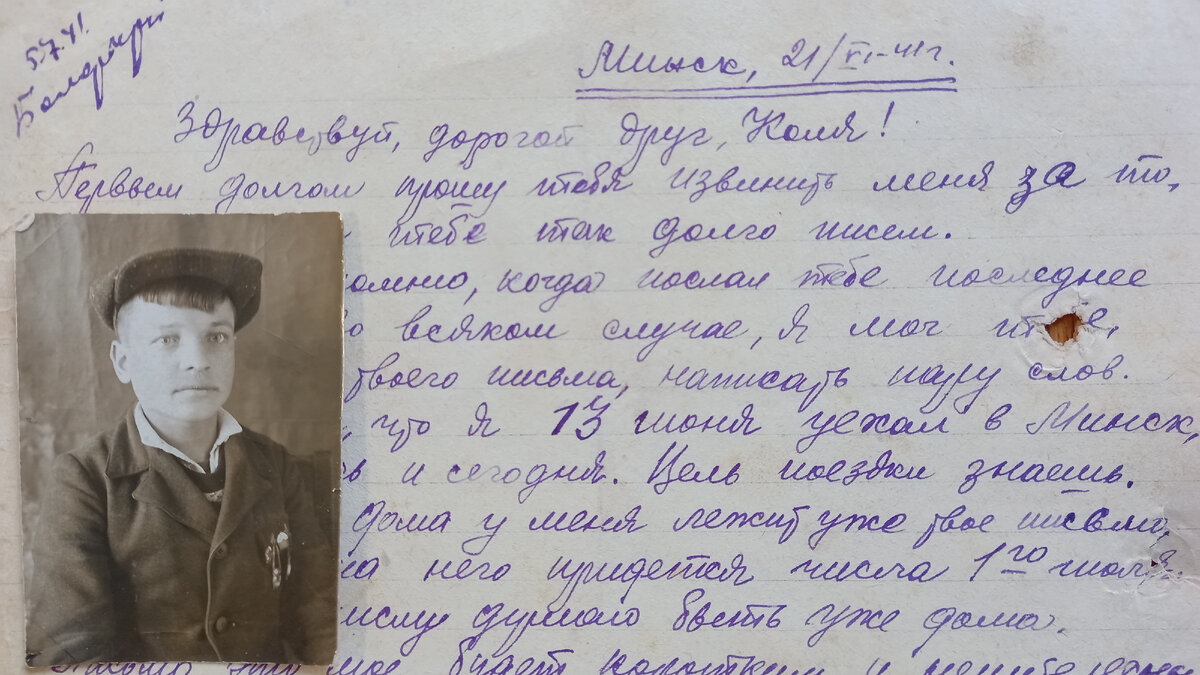 5.7.41.
Минск, 21/VI-41г.
Здравствуй, дорогой друг, Коля!
Первым долгом прошу тебя извинить меня за то,
тебе так долго писем.
омню, когда послал тебе последнее
о всяком случае, я мог
твоего письма, написать пару слов.
, что я 13 июня уехал в Минск,
ь и сегодня. Цель поездки знаешь.
дома у меня лежит уже твое письмо,
на него придется числа 1го июля.
ислу думаю быть уже дома.
Письмо это мое будет коротким и